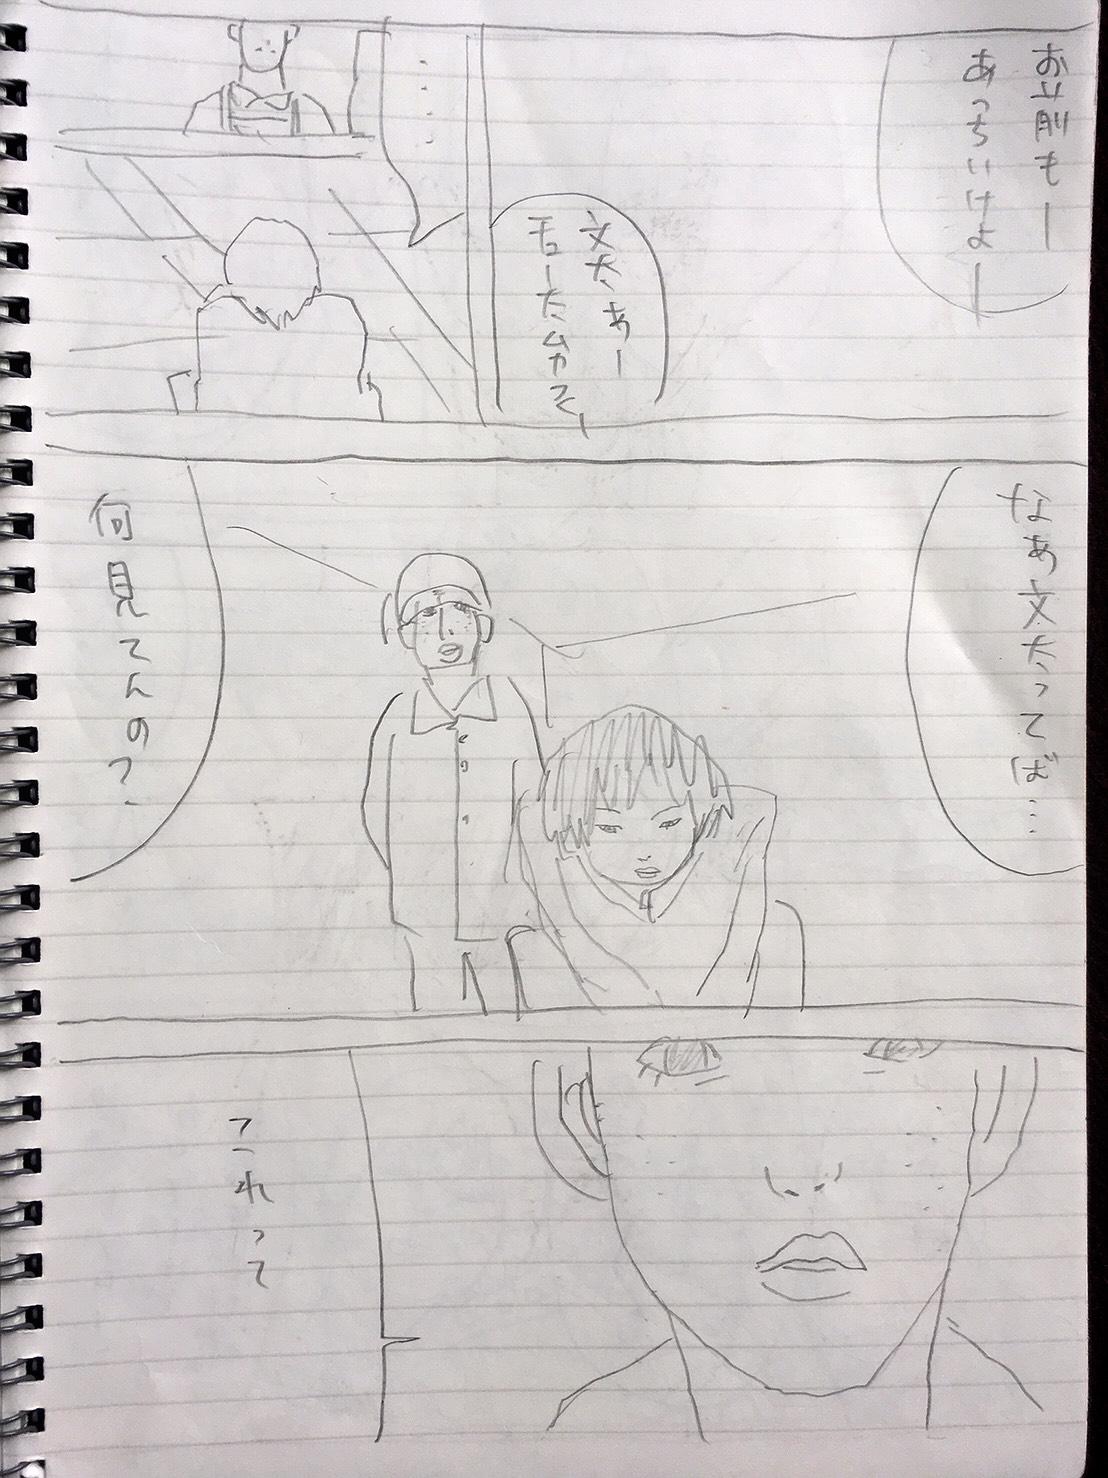 お前もー
あっちいけよー
文太あー
モー太ムカつく
‥‥‥
なあ文太ってば…
何見てんの?
これって